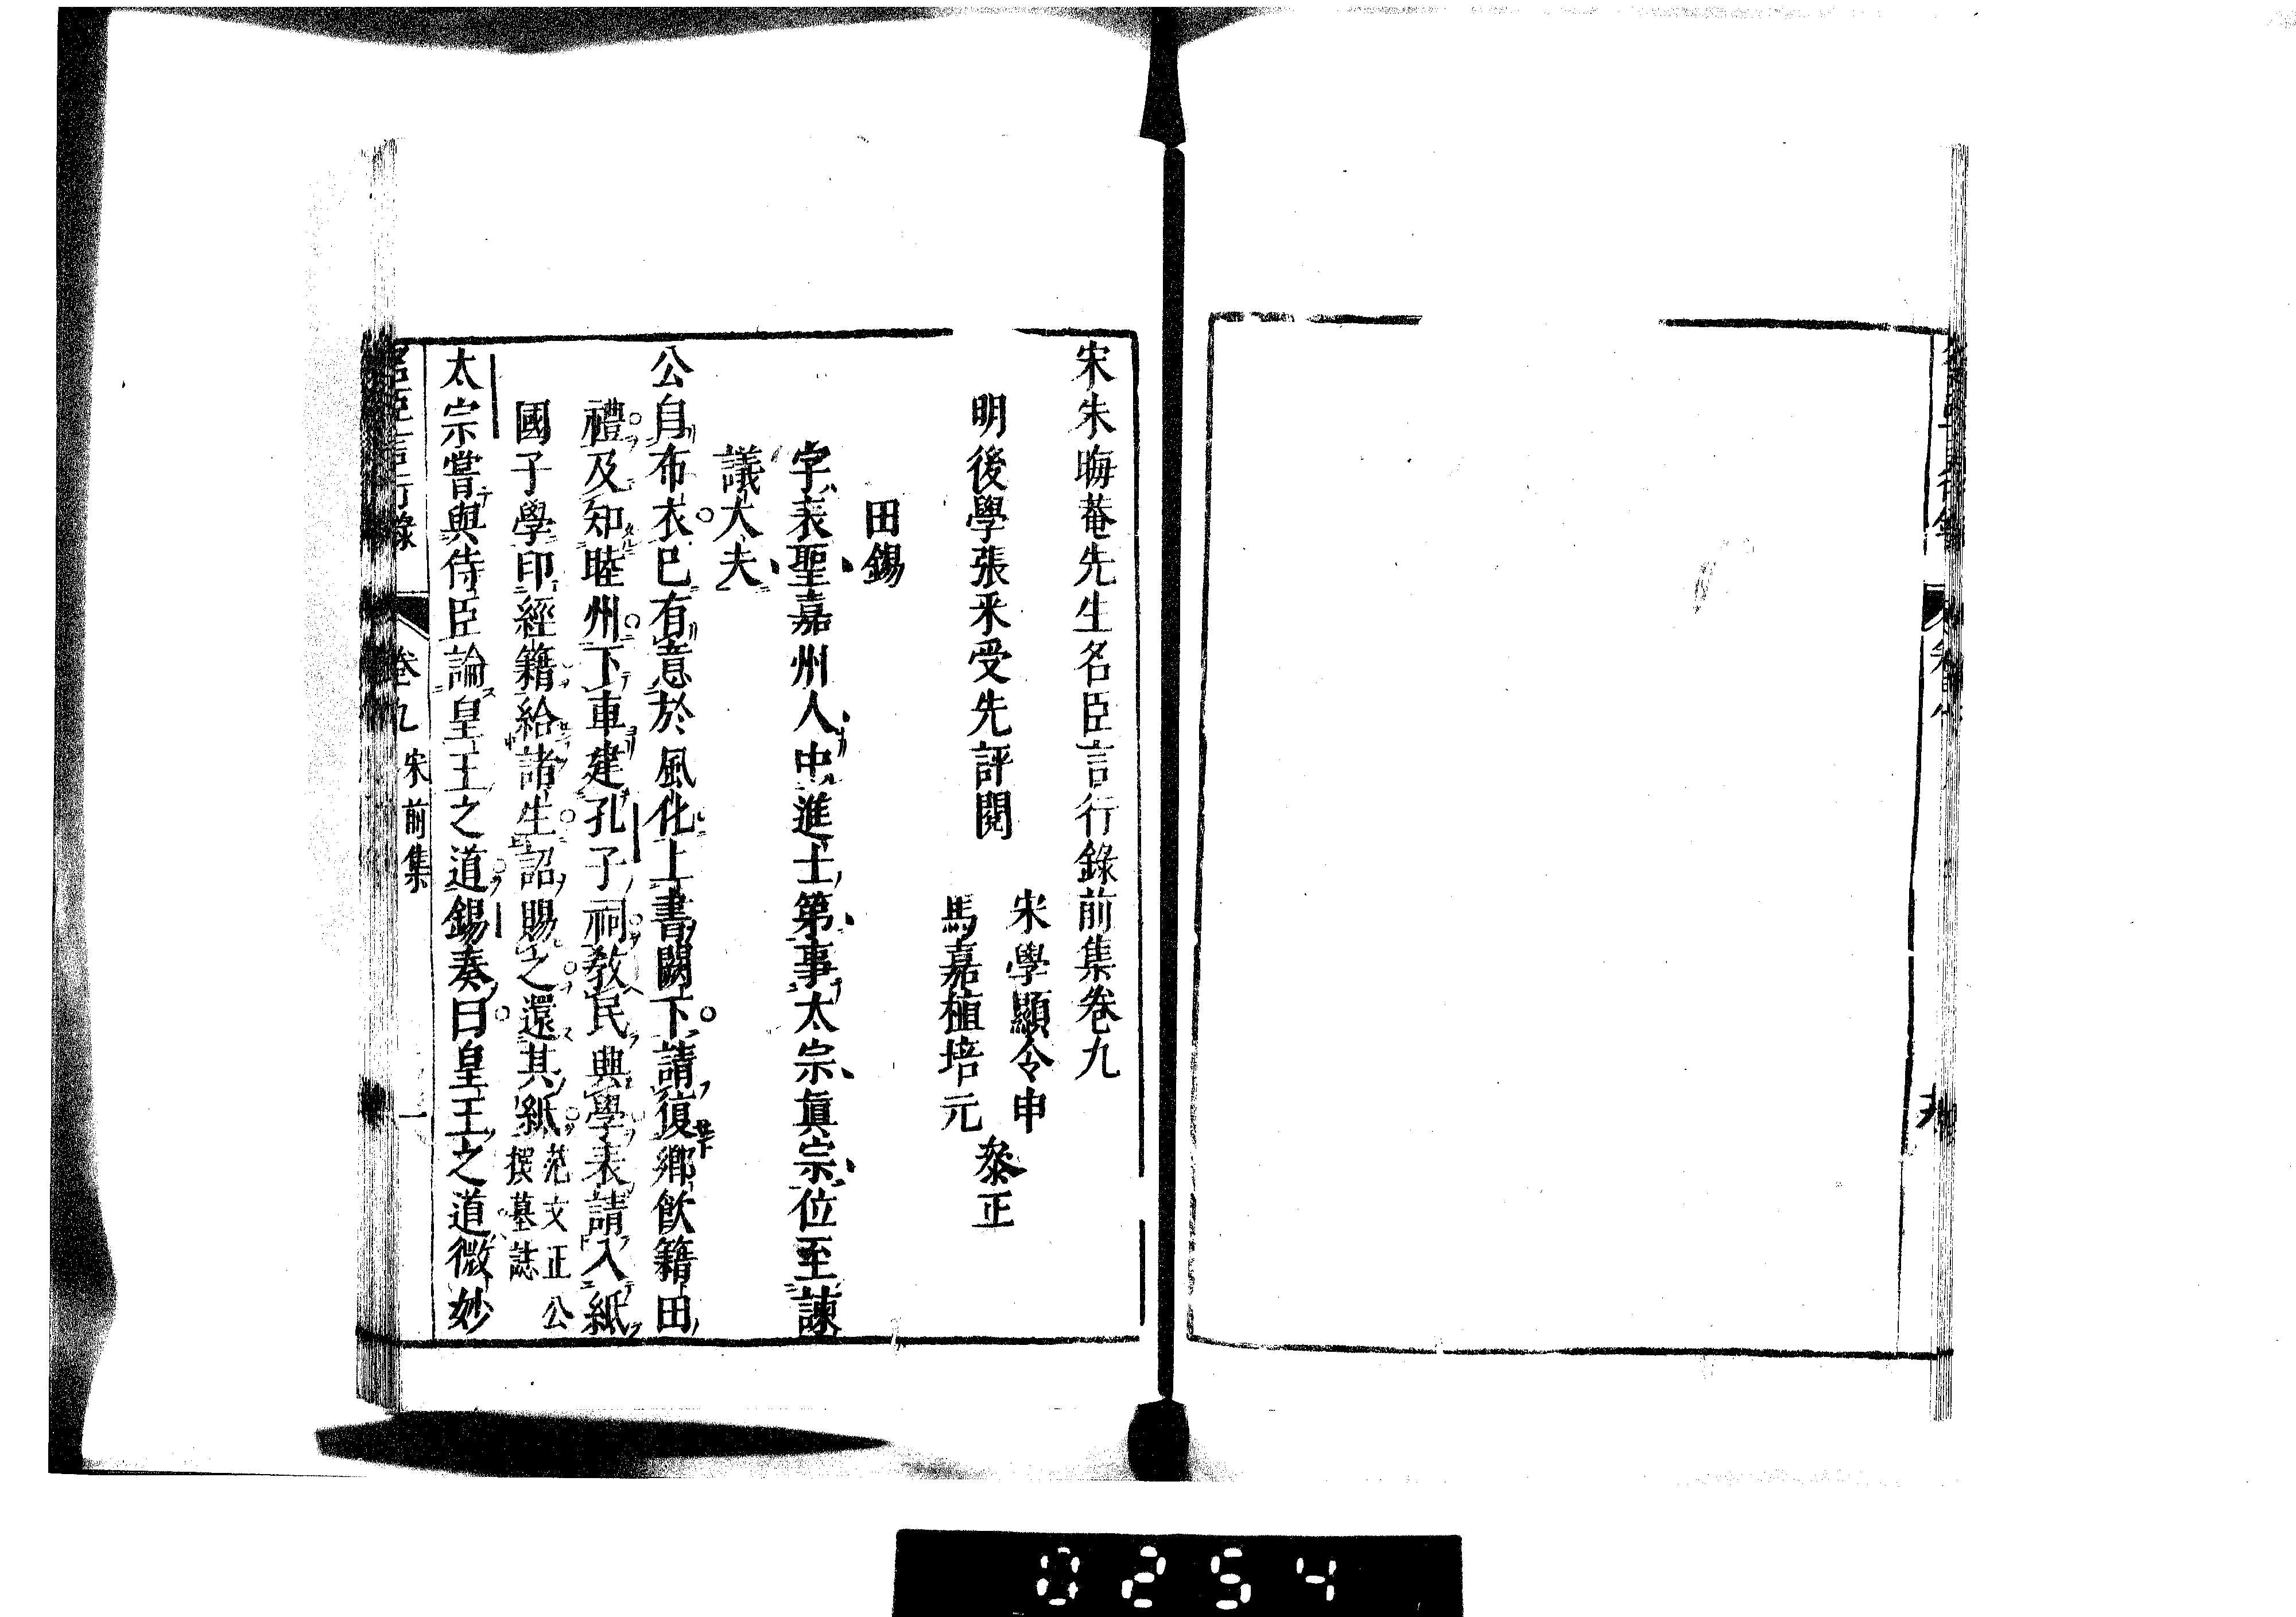 宋朱晦菴先生名臣言行錄前集卷九
明後學張釆受先評閱
宋學顯令申
馬嘉植培元
叅正
田錫
字表聖嘉州人中進士第事太宗眞宗位至諫
議大夫
公自布衣巳有意於風化上書闕下請復鄉飲籍田
禮及知睦州下車建孔子祠敎民興學表請入紙
國子學印經籍給諸生詔賜之還其紙范文正公
撰墓誌
太宗嘗與侍臣論皇王之道錫奏曰皇王之道微妙
名臣言行錄 卷九 宋前集 一
0254